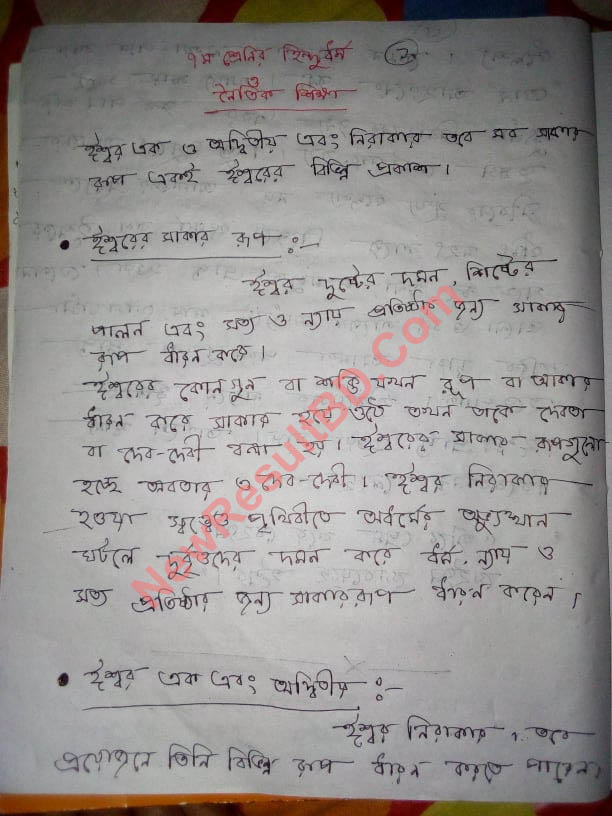 ৭ম শ্রেনির হিন্দুধর্ম
ও
নৈতিক শিক্ষা
ঈশ্বর এক ও অদ্বিতীয় এবং নিরাকার তবে সব সাকার
রূপ একই ঈশ্বরের বিভিন্ন প্রকাশ।
• ঈশ্বরের সাকার রূপ :-
ঈশ্বর দুষ্টের দমন, শিষ্টের
পালন এবং সত্য ও ন্যায় প্রতিষ্ঠার জন্য সাকার
রূপ ধারন করে।
ঈশ্বরের কোন গুন বা শক্তি যখন রূপ বা আকার
ধারন করে সাকার হয়ে ওঠে তখন তাকে দেবতা
বা দেব-দেবী বলা হয়। ঈশ্বরের সাকার রূপগুলো
হচ্ছে অবতার ও দেব-দেবী। ঈশ্বর নিরাকার
হওয়া সত্ত্বেও পৃথিবীতে অধর্মের অভ্যুত্থান
ঘটলে দুর্বৃত্তদের দমন করে ধর্ম, ন্যায় ও
সত্য প্রতিষ্ঠার জন্য সাকাররূপ ধারন করেন।
• ঈশ্বর এক এবং অদ্বিতীয় :-
ঈশ্বর নিরাকার। তবে
প্রয়োজনে তিনি বিভিন্ন রূপ ধারন করতে পারেন।
NewResultBD.Com